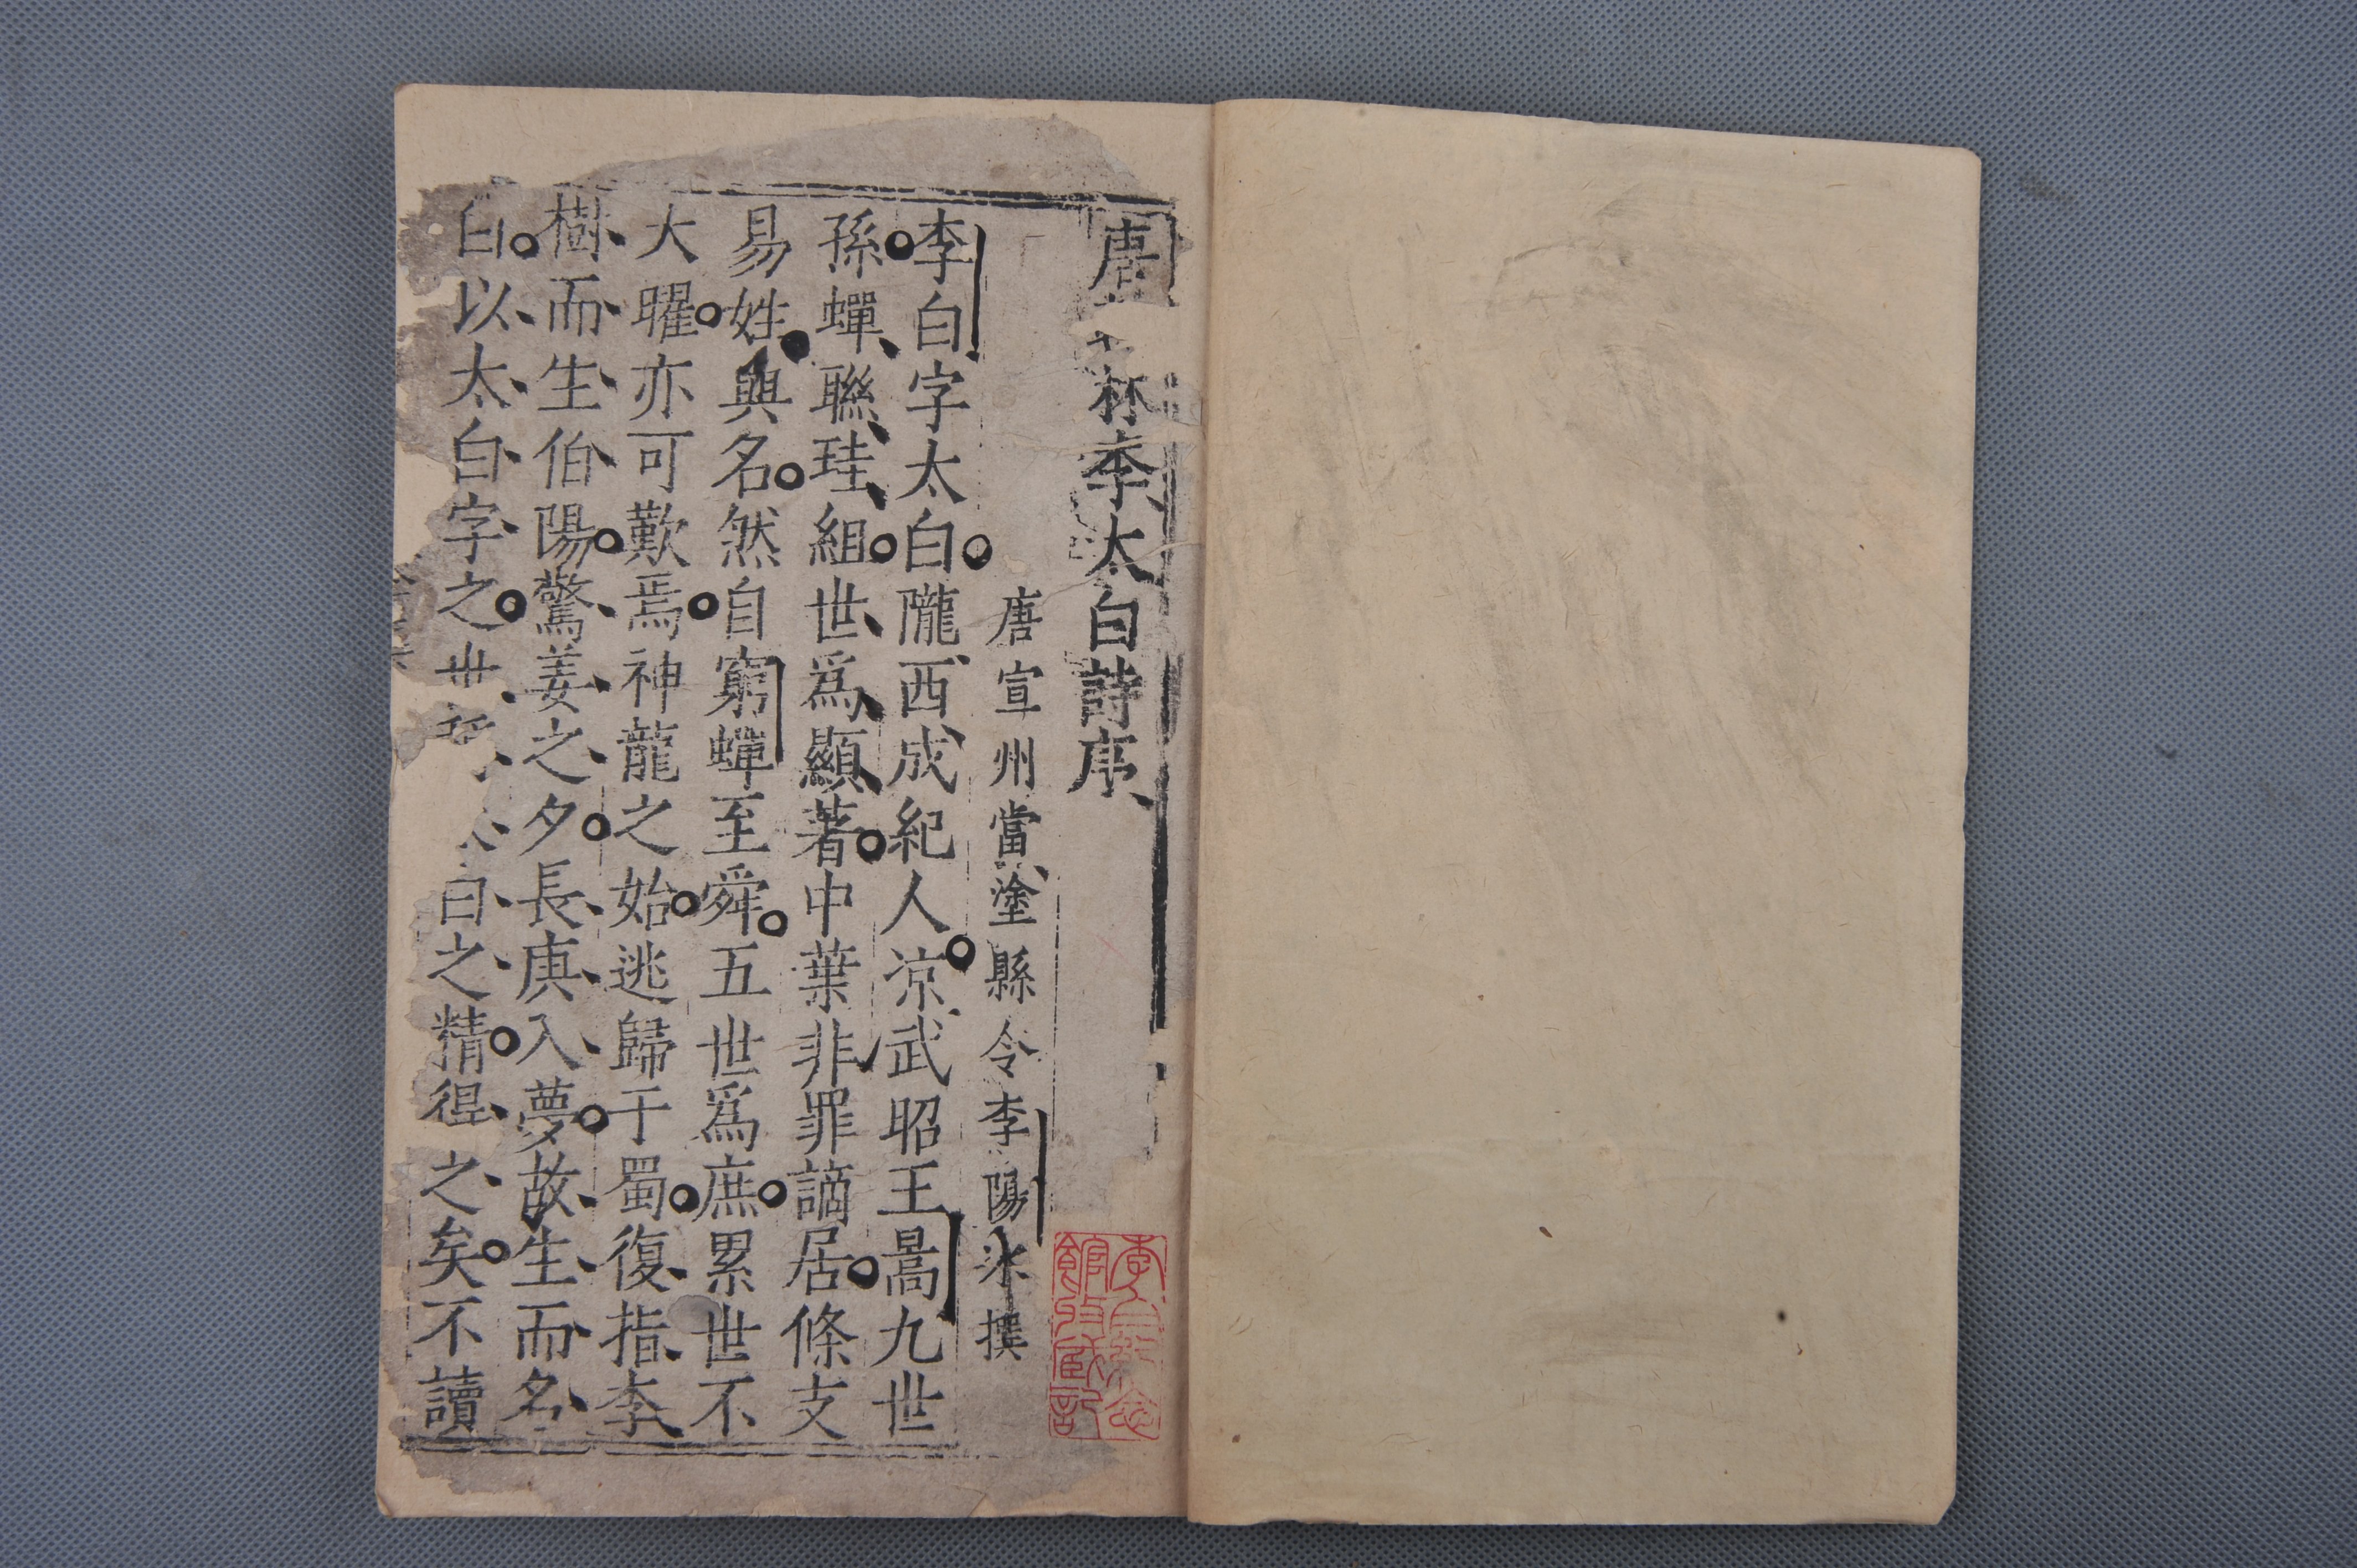 唐 林李太白詩序
唐宣州當塗縣令李陽冰撰
李白字太白隴西成紀人凉武昭王暠九世
孫蟬聯珪組世爲顯著中葉非罪謫居條支
易姓與名然自窮蟬至舜五世爲庶累世不
大曜亦可歎焉神龍之始逃歸于蜀復指李
樹而生伯陽驚姜之夕長庚入夢故生而名
白以太白字之世 白之精得之矣不讀
李白紀念
館收藏記